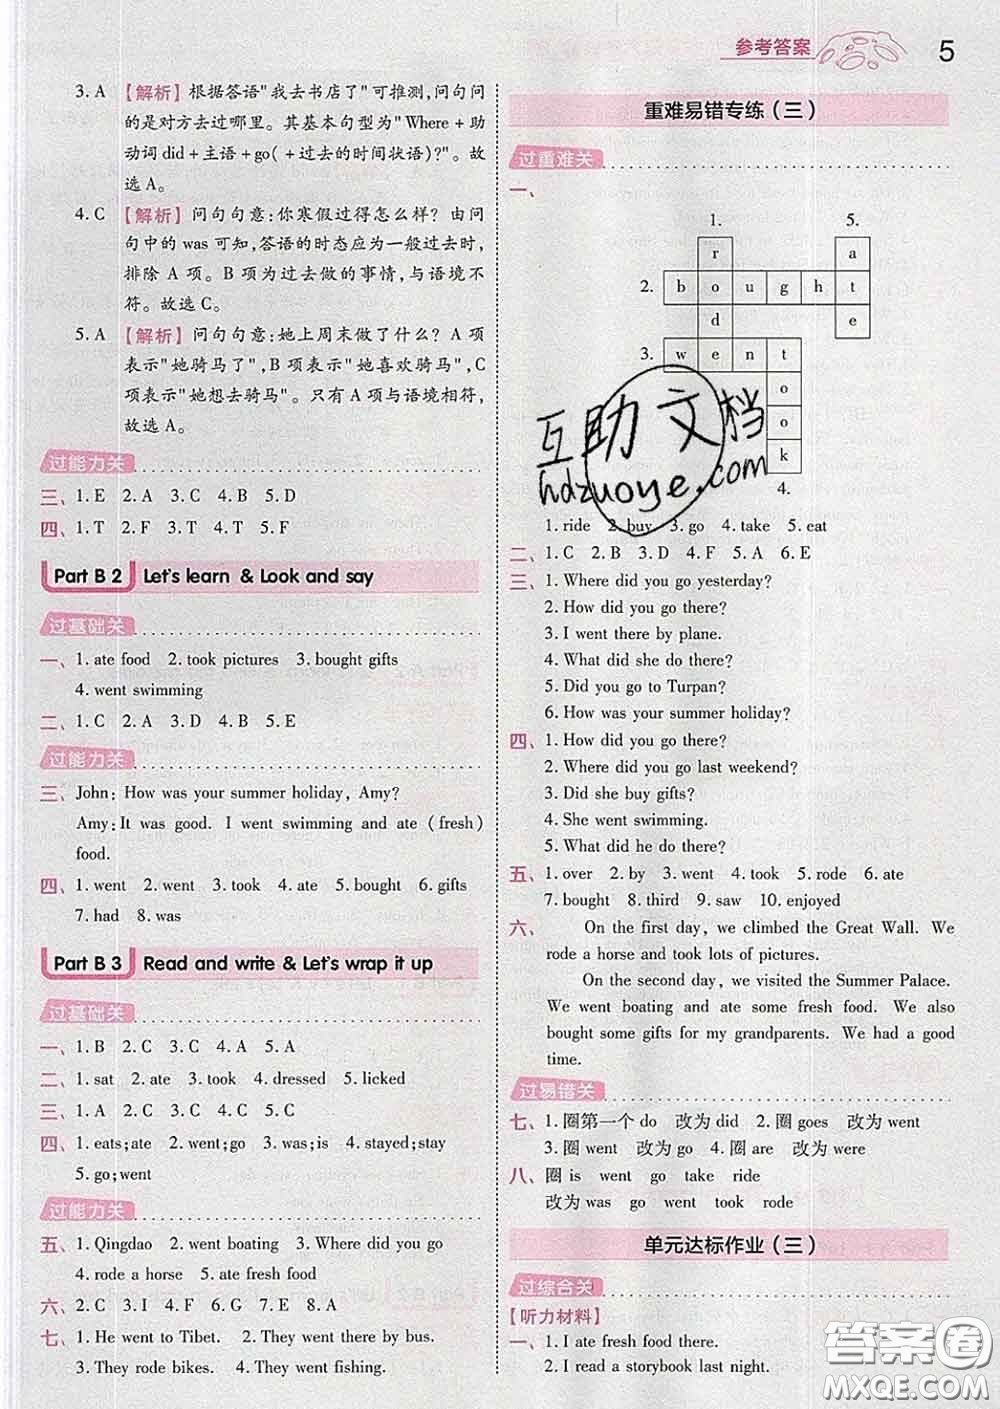 参考答案 5
3. A 【解析】根据答语"我去书店了"可推测,问句问
的是对方去过哪里。其基本句型为"Where+助
动词 did+主语+go(+过去的时间状语)?"。故
选A。
4. C 【解析】问句句意:你寒假过得怎么样?由问
句中的 was 可知,答语的时态应为一般过去时,
排除 A 项。B 项为过去做的事情,与语境不
符。故选C。
5. A 【解析】问句句意:她上周末做了什么?A 项
表示"她骑马了",B 项表示"她喜欢骑马",C
项表示"她想去骑马"。只有 A 项与语境相符,
故选 A。
过能力关
三、1. E 2. A 3. C 4. B 5. D
四、1. T 2. F 3. T 4. T 5. F
Part B 2 Let's learn & Look and say
过基础关
一、1. ate food 2. took pictures 3. bought gifts
4. went swimming
二、1. C 2. A 3. D 4. B 5. E
过能力关
三、John: How was your summer holiday, Amy?
Amy: It was good. I went swimming and ate (fresh)
food.
四、1. went 2. went 3. took 4. ate 5. bought 6. gifts
7. had 8. was
Part B 3 Read and write & Let's wrap it up
过基础关
一、1. B 2. C 3. C 4. A 5. A
二、1. sat 2. ate 3. took 4. dressed 5. licked
三、1. C 2. A 3. B 4. C 5. C
四、1. eats;ate 2. went;go 3. was;is 4. stayed;stay
5. go;went
过能力关
五、1. Qingdao 2. went boating 3. took photos
4. rode a horse 5. ate fresh food
六、2. C 3. I 4. E 5. F 6. G 7. H 8. A
七、1. He went to Tibet. 2. They went there by bus.
3. They rode bikes. 4. They went fishing.
重难易错专练(三)
过重难关
一、
1. 5.
r a
2. b o u g h t
d e
3. w e n t
o
o
k
4.
1. ride 2. buy 3. go 4. take 5. eat
二、1. C 2. B 3. D 4. F 5. A 6. E
三、1. Where did you go yesterday?
2. How did you go there?
3. I went there by plane.
4. What did she do there?
5. Did you go to Turpan?
6. How was your summer holiday?
四、1. How did you go there?
2. Where did you go last weekend?
3. Did she buy gifts?
4. She went swimming.
5. What did he do there?
五、1. over 2. by 3. went 4. took 5. rode 6. ate
7. bought 8. third 9. saw 10. enjoyed
六、 On the first day, we climbed the Great Wall. We
rode a horse and took lots of pictures.
On the second day, we visited the Summer Palace.
We went boating and ate some fresh food. We also
bought some gifts for my grandparents. We had a good
time.
过易错关
七、1. 圈第一个 do 改为 did 2. 圈 goes 改为 went
3. 圈 went 改为 go 4. 圈 are 改为 were
八、圈 is went go take ride
改为 was go went took rode
单元达标作业(三)
过综合关
【听力材料】
一、1. I ate fresh food there.
2. I read a storybook last night.
互助文档
hdzuoye.com
答案圈
MXQE.COM